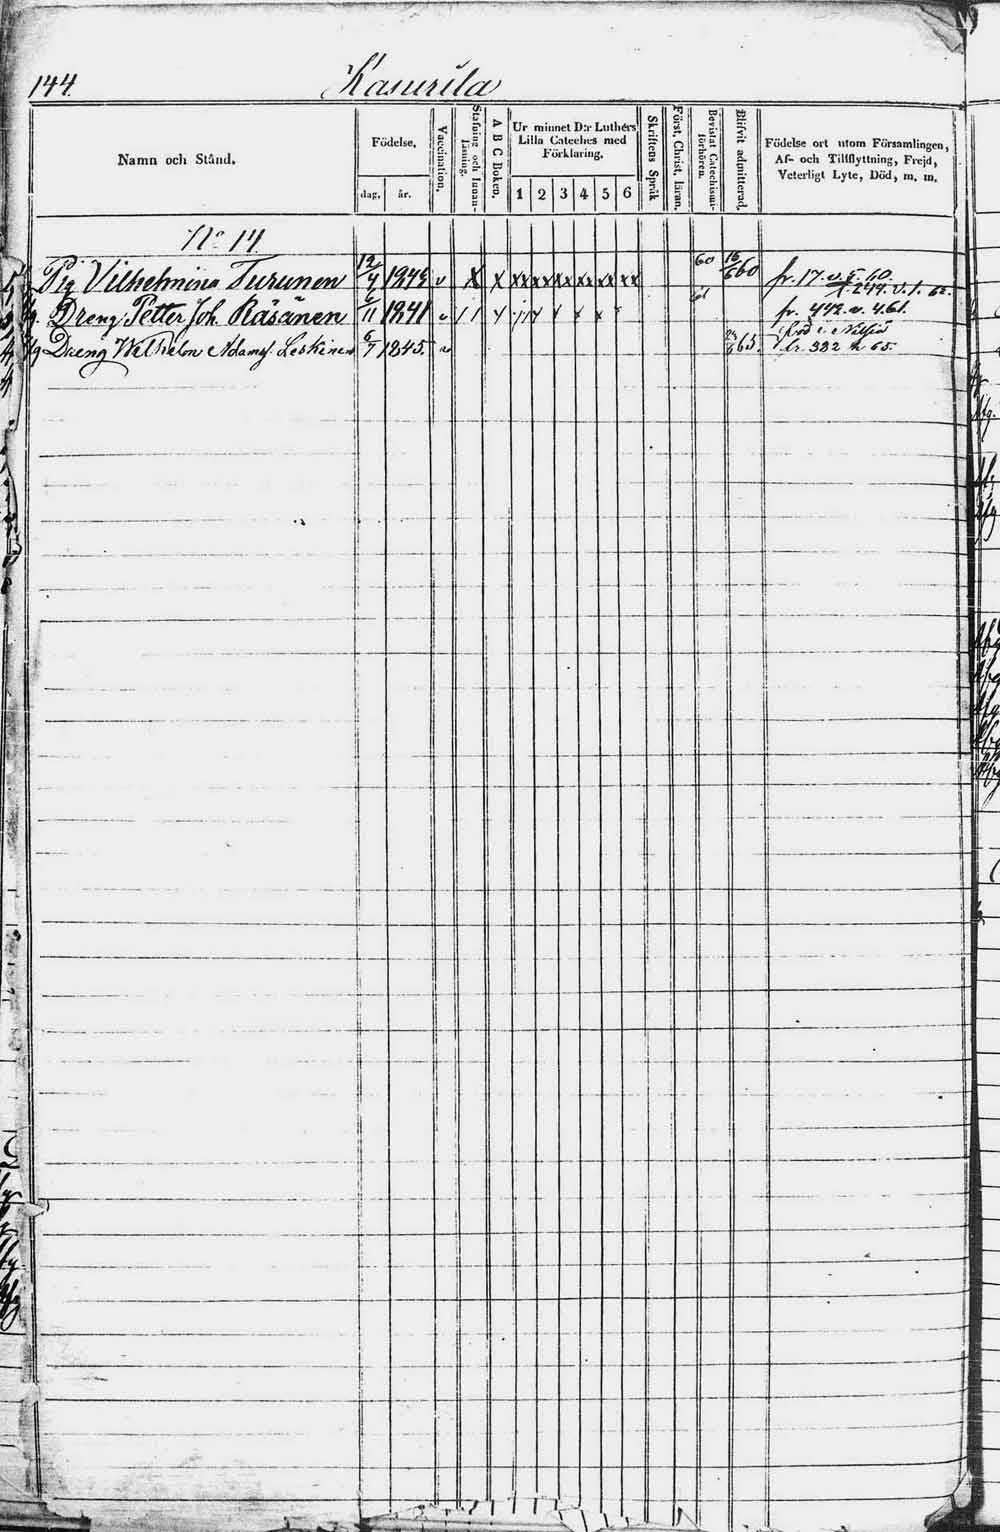 144.
Kasurila
Namn och Stånd.
Födelse,
dag.
år.
Vaccination.
Stafning och Innan-
läsning.
A B C Boken.
Ur minnet D:r Luthers
Lilla Cateches med
Förklaring.
1 2 3 4 5 6
Skriftens Språk
Först. Christ. läran.
Bevistat Catechismi-
förhören.
Blifvit admitterad.
Födelse ort utom Församlingen,
Af- och Tillflyttning, Frejd,
Veterligt Lyte, Död, m. m.
No 14
Pig Vilhelmina Turunen 12/4 v x x xx xx xx xx xx xx 60 16/6 60 fr. 17. v. 5. 60.
t. 249. v. 1. 62.
Dreng Petter Joh. Räsänen 6/11 1841 v 61 fr. 442. v. 461.
Dreng Wilhelm Adamss. Leskinen 6/7 1845. v 65. född i Nilsiä
fr. 332 65.